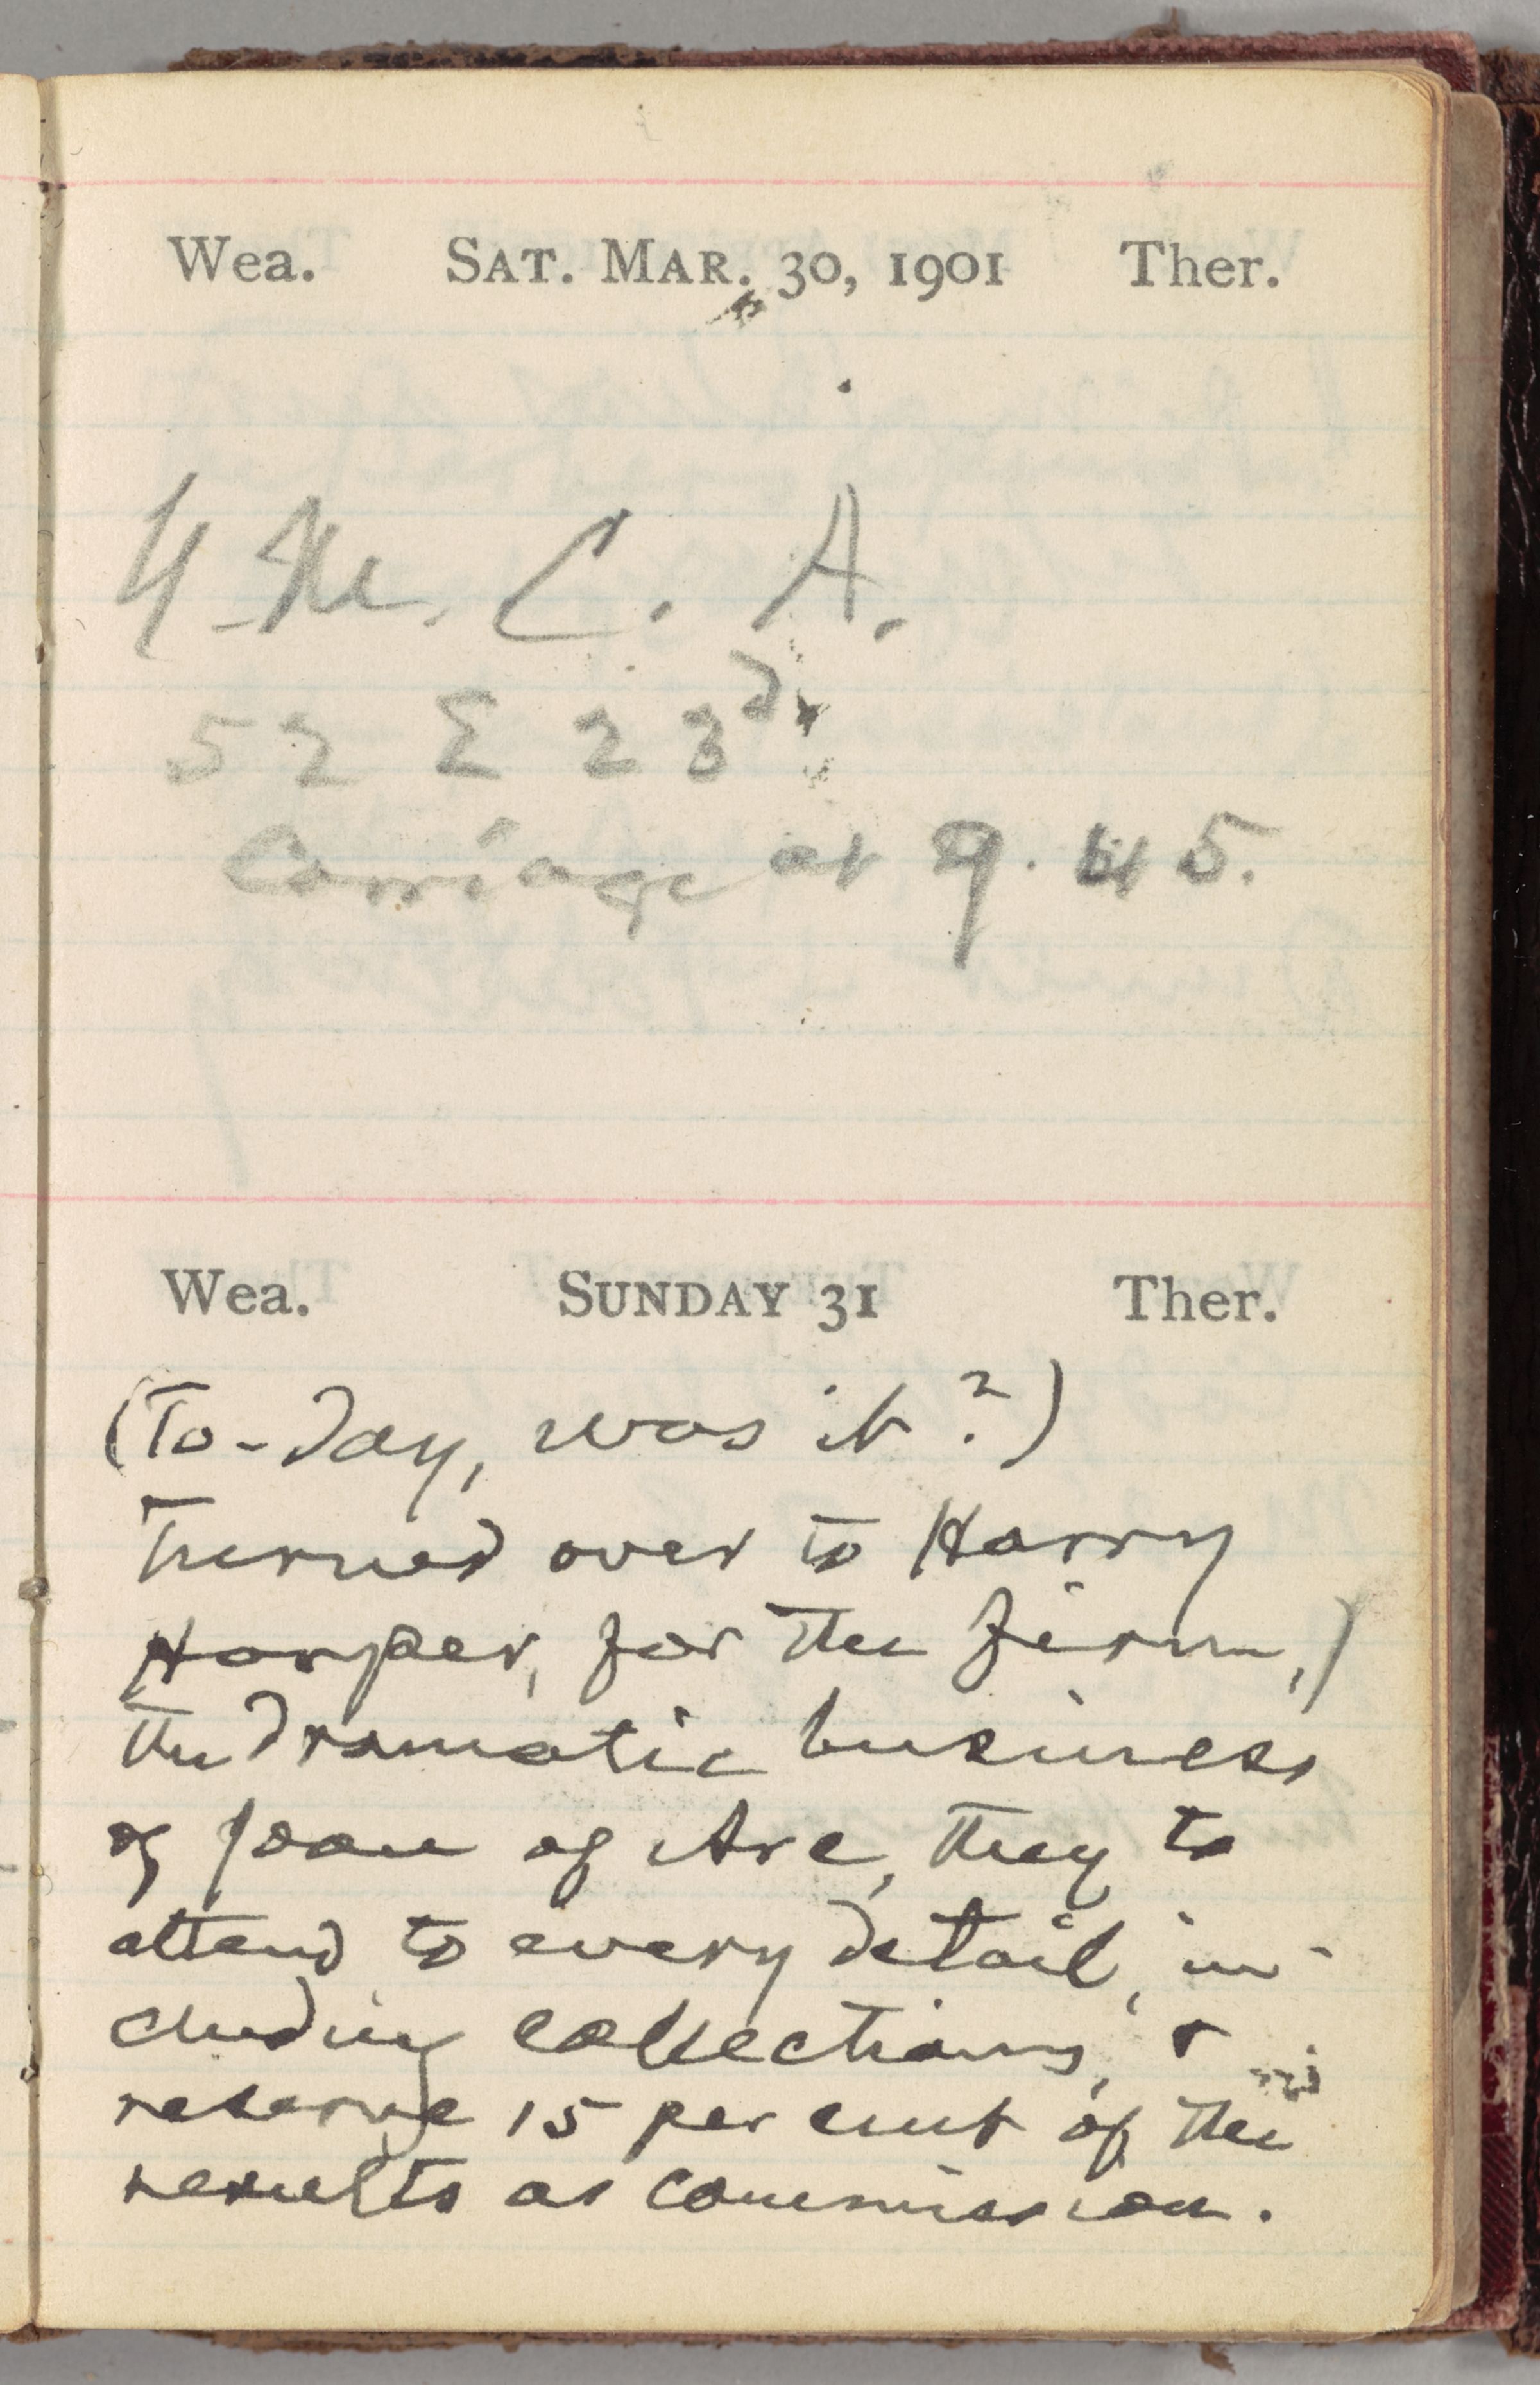 Wea. SAT. MAR. 30, 1901 Ther.
Y. M. C. A.
52 E 23d
Carriage at 9.45.
Wea. SUNDAY 31 Ther.
(To-day, was it?)
Turned over to Harry
Harper, for the firm,)
the dramatic business
of Joan of Arc, they to
attend to every detail, in-
cluding collections, &
reserve 15 per cent of the
results as commission.